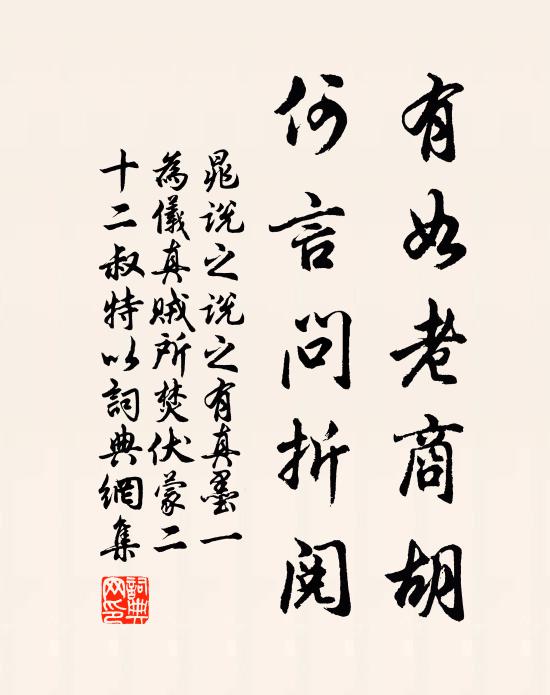 有如老商胡
何言問折閱
晁說之說之有真墨一
為儀真賊所焚伏蒙二
十二叔特以詞典網集
詞典網印